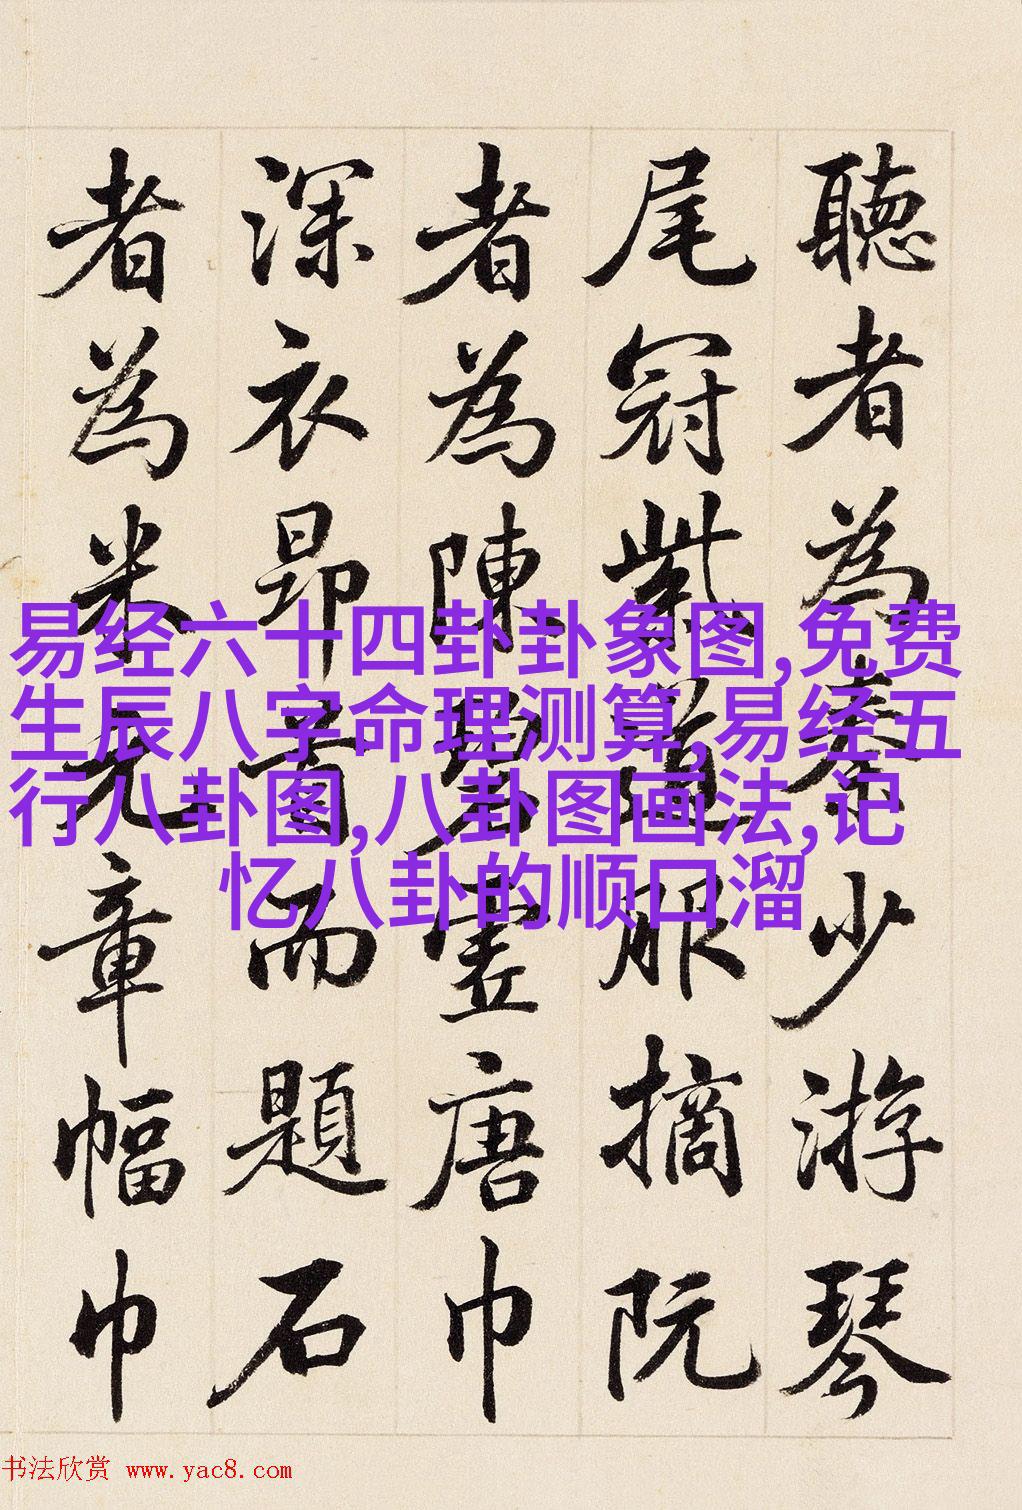 聽者為秦少游琴
尾冠紫道服摘阮
者為陳碧虛唐巾
深衣昂首而題石
者為米元章幅巾
易经六十四卦卦象图,免费
生辰八字命理测算,易经五
行八卦图,八卦图画法,记
忆八卦的顺口溜
书法欣赏 www.yac8.com